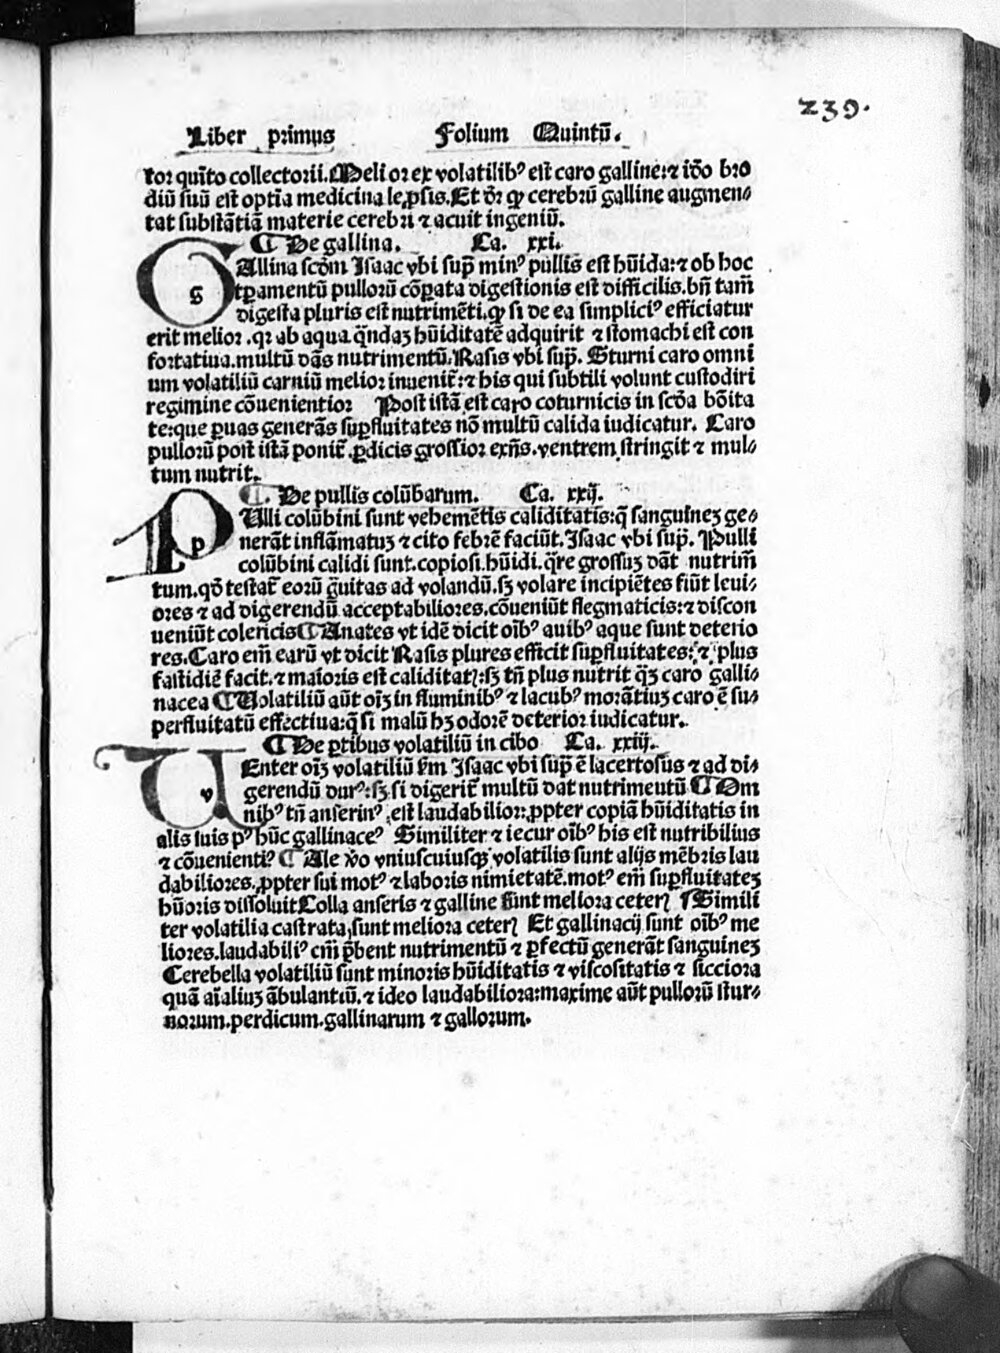 239.
Liber primus Folium Quintū.
tor quīto collectorii. Melior ex volatilibꝰ est caro galline: ⁊ iōo bro
diū suū est optīa medicina leꝓsis. Et dr̄ ꝙ cerebrū galline augmen⸗
tat substātiā materie cerebri ⁊ acuit ingeniū.
¶ De gallina. Ca. xxi.
g
Allina scōm Isaac vbi sup̄ minꝰ pullis est hūida: ⁊ ob hoc
tꝑamentū pulloꝝ cōꝑata digestionis est difficilis. bn̄ tam̄
digesta pluris est nutrimēti. ꝙ si de ea simpliciꝰ efficiatur
erit melior. qr ab aqua q̄ndaz hūiditatē adquirit ⁊ stomachi est con
fortatiua. multū dās nutrimentū. Rasis vbi sup̄. Sturni caro omni
um volatiliū carniū melior inuenit̄: ⁊ his qui subtili volunt custodiri
regimine cōuenientior Post istā est caro coturnicis in scōa bōita
te: que ꝑuas generās suꝑfluitates nō multū calida iudicatur. Caro
pullorū post istā ponit̄. ꝑdicis grossior exn̄s. ventrem stringit ⁊ mul⸗
tum nutrit.
¶. De pullis colūbarum. Ca. xxij.
p
Ulli colūbini sunt vehemētis caliditatis: q̄ sanguinez ge⸗
nerāt inflāmatuz ⁊ cito febrē faciūt. Isaac vbi sup̄. Pulli
colūbini calidi sunt. copiosi. hūidi. q̄re grossuz dāt nutrim̄
tum. qō testat̄ eorū ḡuitas ad volandū. sꝫ volare incipiētes fiūt leui⸗
ores ⁊ ad digerendū acceptabiliores. cōueniūt flegmaticis: ⁊ discon
ueniūt colericis ¶ Anates vt idē dicit oībꝰ auibꝰ aque sunt deterio
res. Caro em̄ earū vt dicit Rasis plures efficit suꝑfluitates: ⁊ plus
fastidiē facit. ⁊ maioris est caliditatꝭ: sꝫ tn̄ plus nutrit qꝫ caro galli
nacea ¶ Volatiliū aūt oīꝫ in fluminibꝰ ⁊ lacubꝰ morātiuz caro ē su⸗
perfluitatū effectiua: q̄ si malū hꝫ odorē deterior iudicatur.
¶ De ꝑtibus volatiliū in cibo Ca. xxiij.
v
Enter oīꝫ volatiliū ẜm Isaac vbi sup̄ ē lacertosus ⁊ ad di⸗
gerendū durꝰ: sꝫ si digerit̄ multū dat nutrimentū ¶ Om
nibꝰ tn̄ anserinꝰ est laudabilior: ꝓpter copiā hūiditatis in
alis suis pꝰ hūc gallinaceꝰ Similiter ⁊ iecur oībꝰ his est nutribilius
⁊ cōuenientiꝰ ¶ Ale v̄o vniuscuiusqꝫ volatilis sunt alijs mēbris lau
dabiliores. ꝓpter sui motꝰ ⁊ laboris nimietatē. motꝰ em̄ suꝑfluitatez
hūoris dissoluit Colla anseris ⁊ galline sunt meliora ceterꝭ ¶ Simili
ter volatilia castrata, sunt meliora ceterꝭ Et gallinacij sunt oībꝰ me
liores. laudabiliꝰ em̄ p̄bent nutrimentū ⁊ ꝑfectū generāt sanguinez
Cerebella volatiliū sunt minoris hūiditatis ⁊ viscositatis ⁊ sicciora
quā aīaliuz ābulantiū. ⁊ ideo laudabiliora: maxime aūt pullorū stur⸗
norum. perdicum. gallinarum ⁊ gallorum.